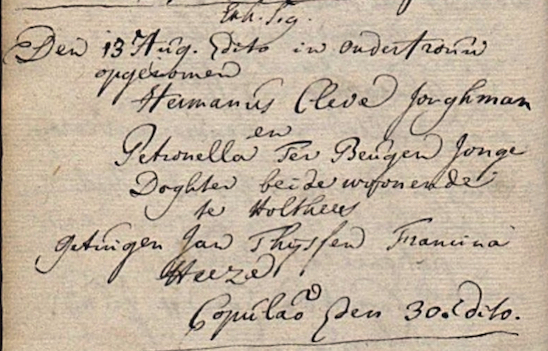 Inh. Sig.
Den 13 Aug. dito in ondertrouw
opgenomen
Hermanus Cleve Jonghman
en
Petronella Ter Beugen Jonge
Doghter beide woonende
te Holthees
getuigen Jan Thyssen Francina
Heeze
Copulao den 30. dito.